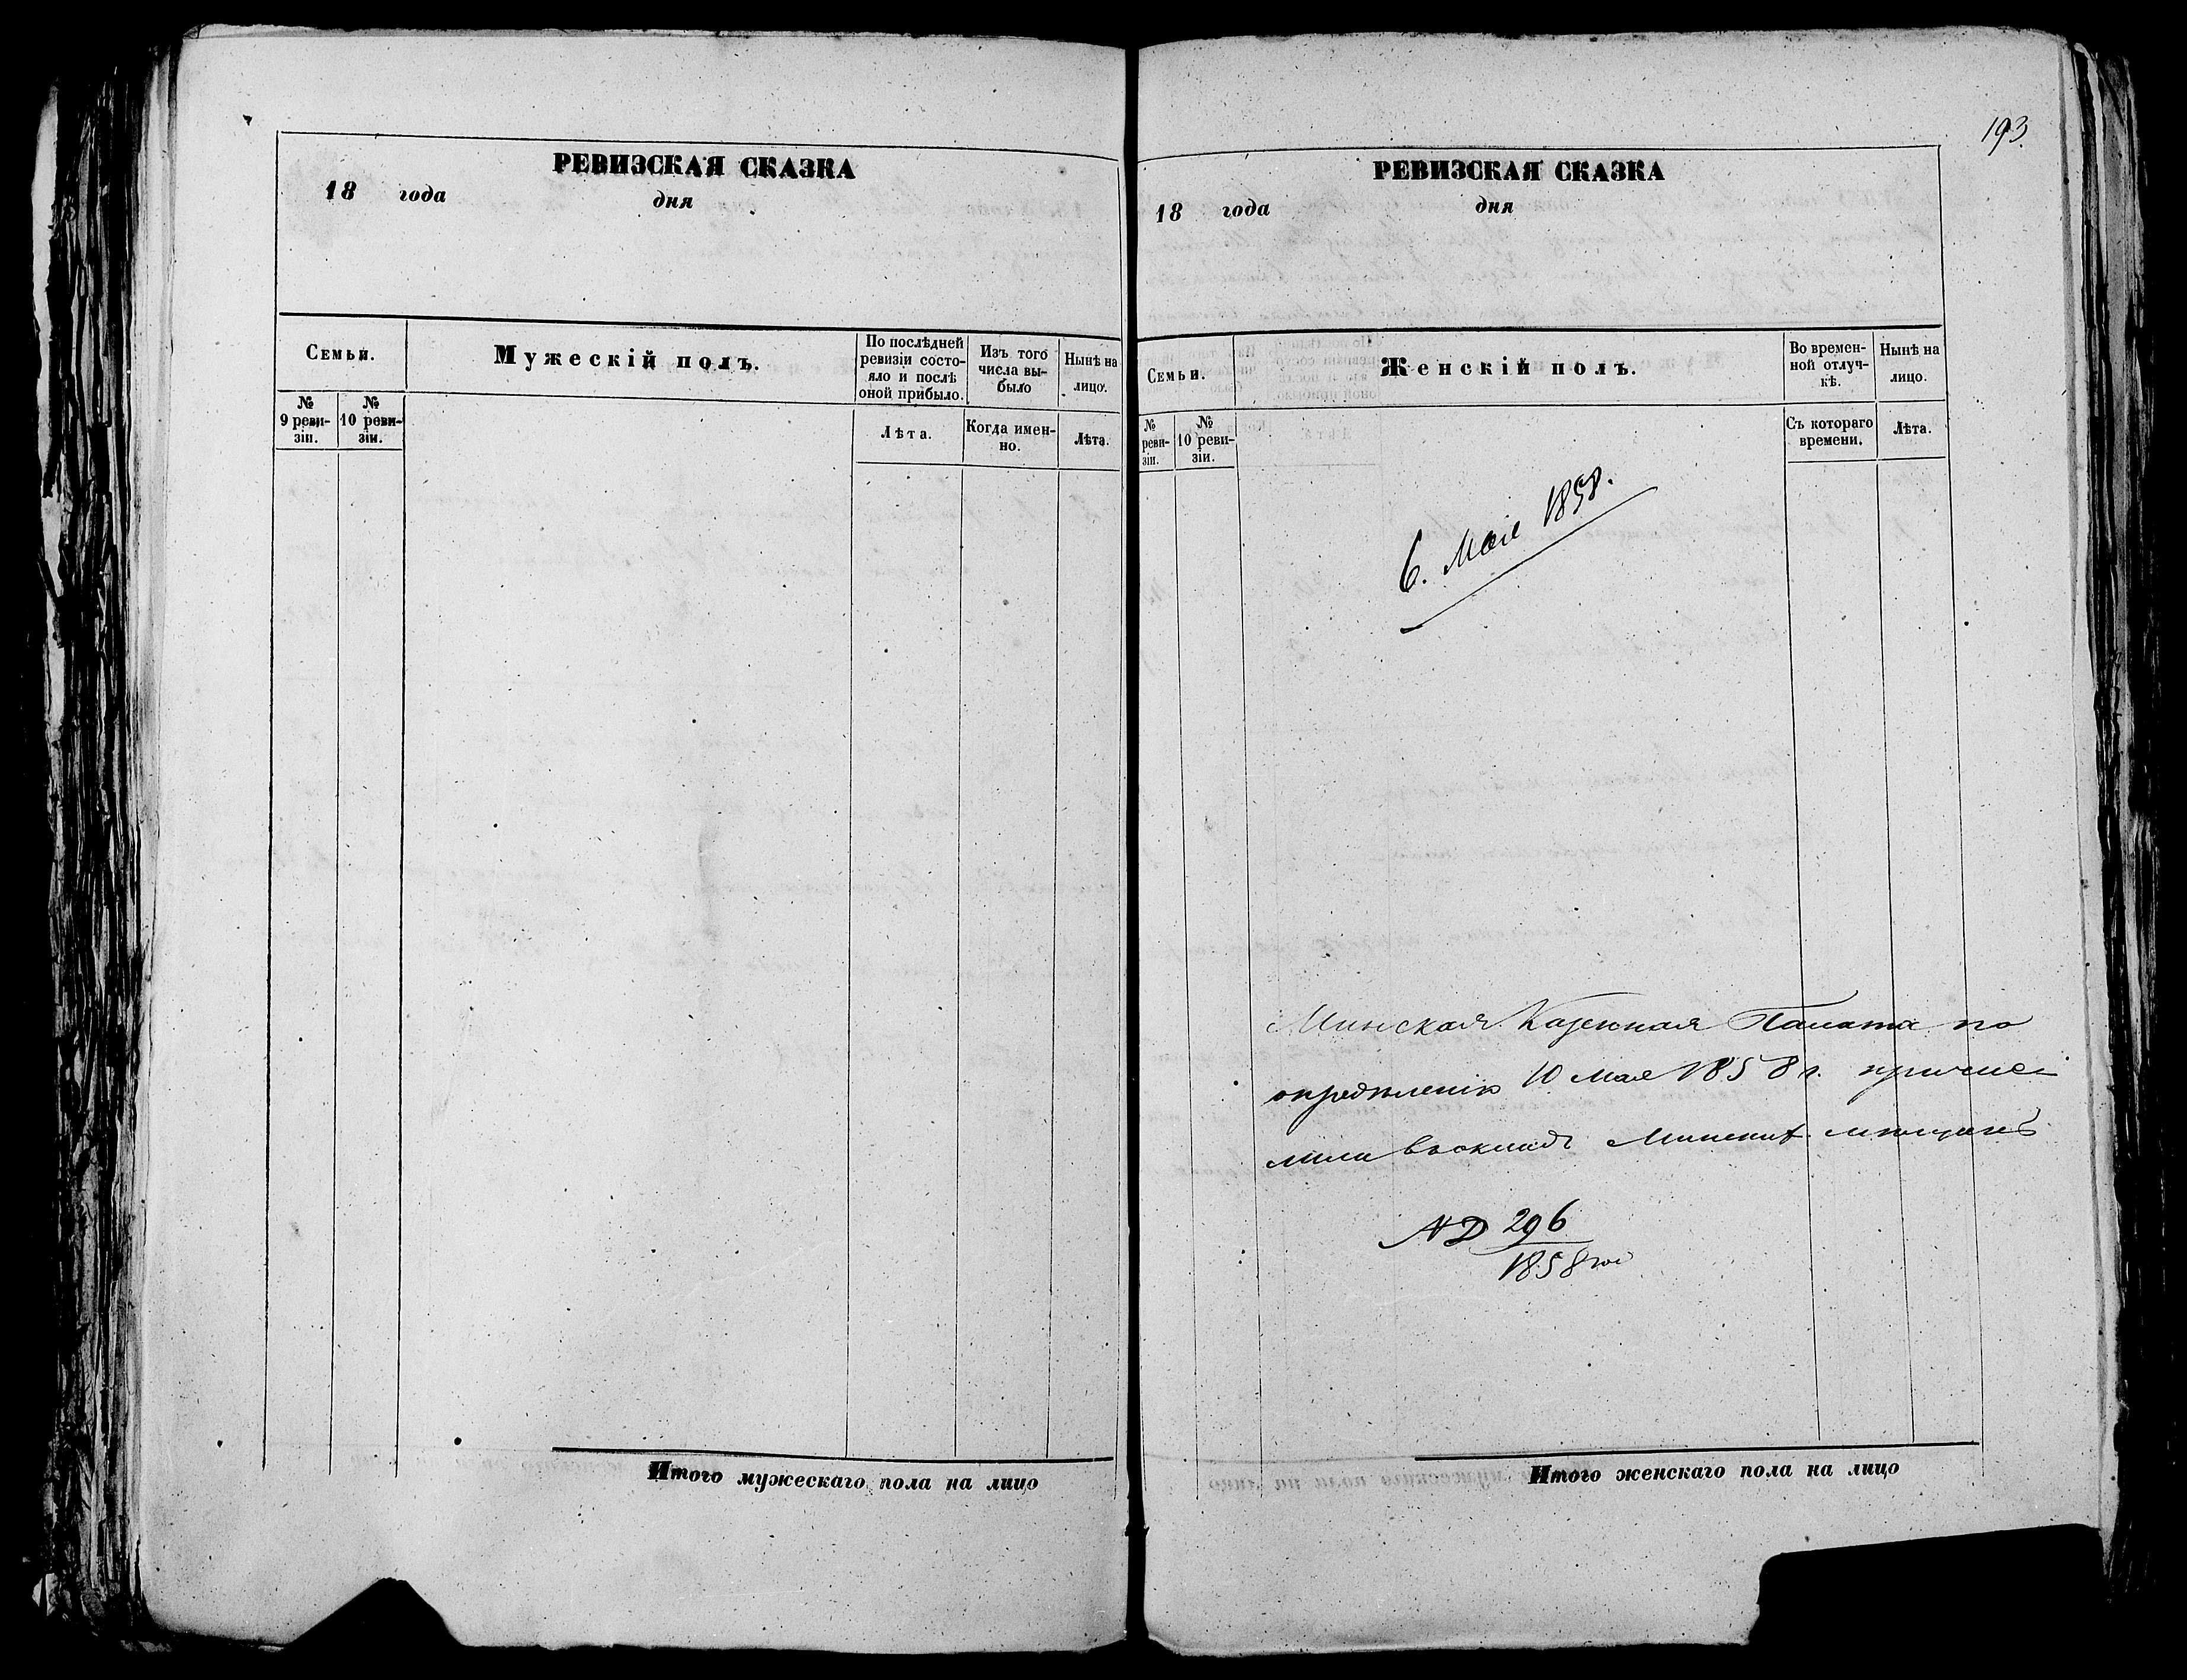 РЕВИЗСКАЯ СКАЗКА
18 года дня
Семьи.
Мужескій полъ.
По послѣдней
ревизіи состо-
яло и послѣ
оной прибыло.
Изъ того
числа вы-
было
Нынѣ на
лицо.
№
9 реви-
зіи.
№
10 реви-
зіи.
Лѣта.
Когда имен-
но.
Лѣта.
Итого мужескаго пола на лицо
193
РЕВИЗСКАЯ СКАЗКА
18 года дня
Семьи.
Женскій полъ.
Во времен-
ной отлуч-
кѣ.
Нынѣ на
лицо.
№
реви-
зіи.
№
10 реви-
зіи.
Съ котораго
времени.
Лѣта.
6. Мая 1858.
Минская Казенная Палата по
опредѣленію 10 Мая 1858 г. причис-
лила въ окладъ Минских мѣщанъ
296
1858
Итого женскаго пола на лицо